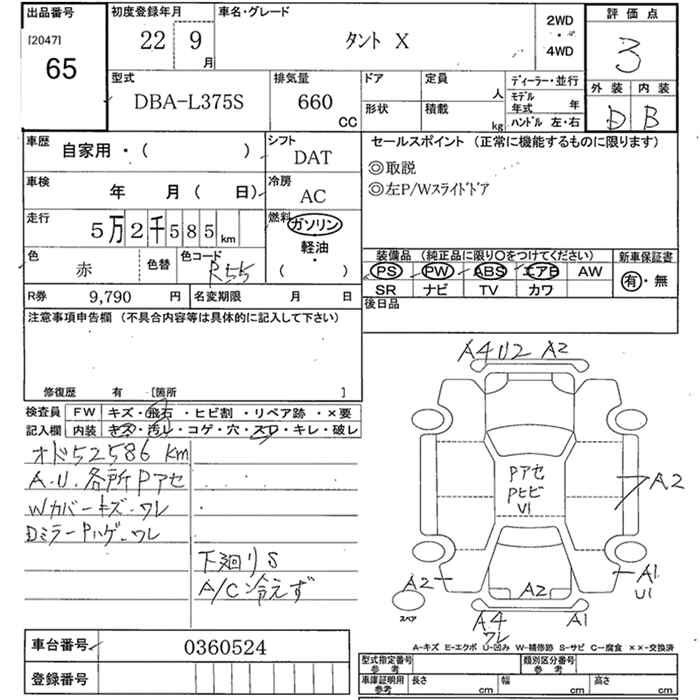 出品番号
[2047]
65
初度登録年月
22 9 月
車名・グレード
タント X
2WD
・
4WD
評価点
3
外装 内装
D B
型式
DBA-L375S
排気量
660
CC
ドア
形状
定員
人
積載
kg
ディーラー・並行
モデル年式 年
ハンドル 左・右
車歴
自家用・( )
シフト
DAT
車検
年 月 ( 日)
冷房
AC
走行
5万2千585 km
燃料
ガソリン
軽油
・
( )
色
赤
色替
色コード
R55
R券 9,790 円
名変期限 月 日
セールスポイント (正常に機能するものに限ります)
◎取説
◎左P/Wスライドドア
装備品 (純正品に限り〇をつけてください)
PS PW ABS エアB AW
SR ナビ TV カワ
新車保証書
有・無
後日品
注意事項申告欄 (不具合内容等は具体的に記入して下さい)
修復歴 有 [箇所 ]
検査員
記入欄
FW キズ・飛石・ヒビ割・リペア跡・×要
内装 キズ・汚レ・コゲ・穴・スレ・キレ・破レ
オド52586 Km
A.U.各所 Pアセ
Wカバーキズ・ワレ
Dミラー Pハゲ・ワレ
下廻りS
A/C冷えず
A4U2 A2
Pアセ
Pヒビ
V1
A2
A2
A2
A1
U1
スペア
A4
ワレ
A1
A-キズ E-エクボ U-凹み W-補修跡 S-サビ C-腐食 ××-交換済
車台番号 0360524
登録番号
型式指定番号
参考
類別区分番号
参考
車庫証明用
参考
長さ cm
幅 cm
高さ cm